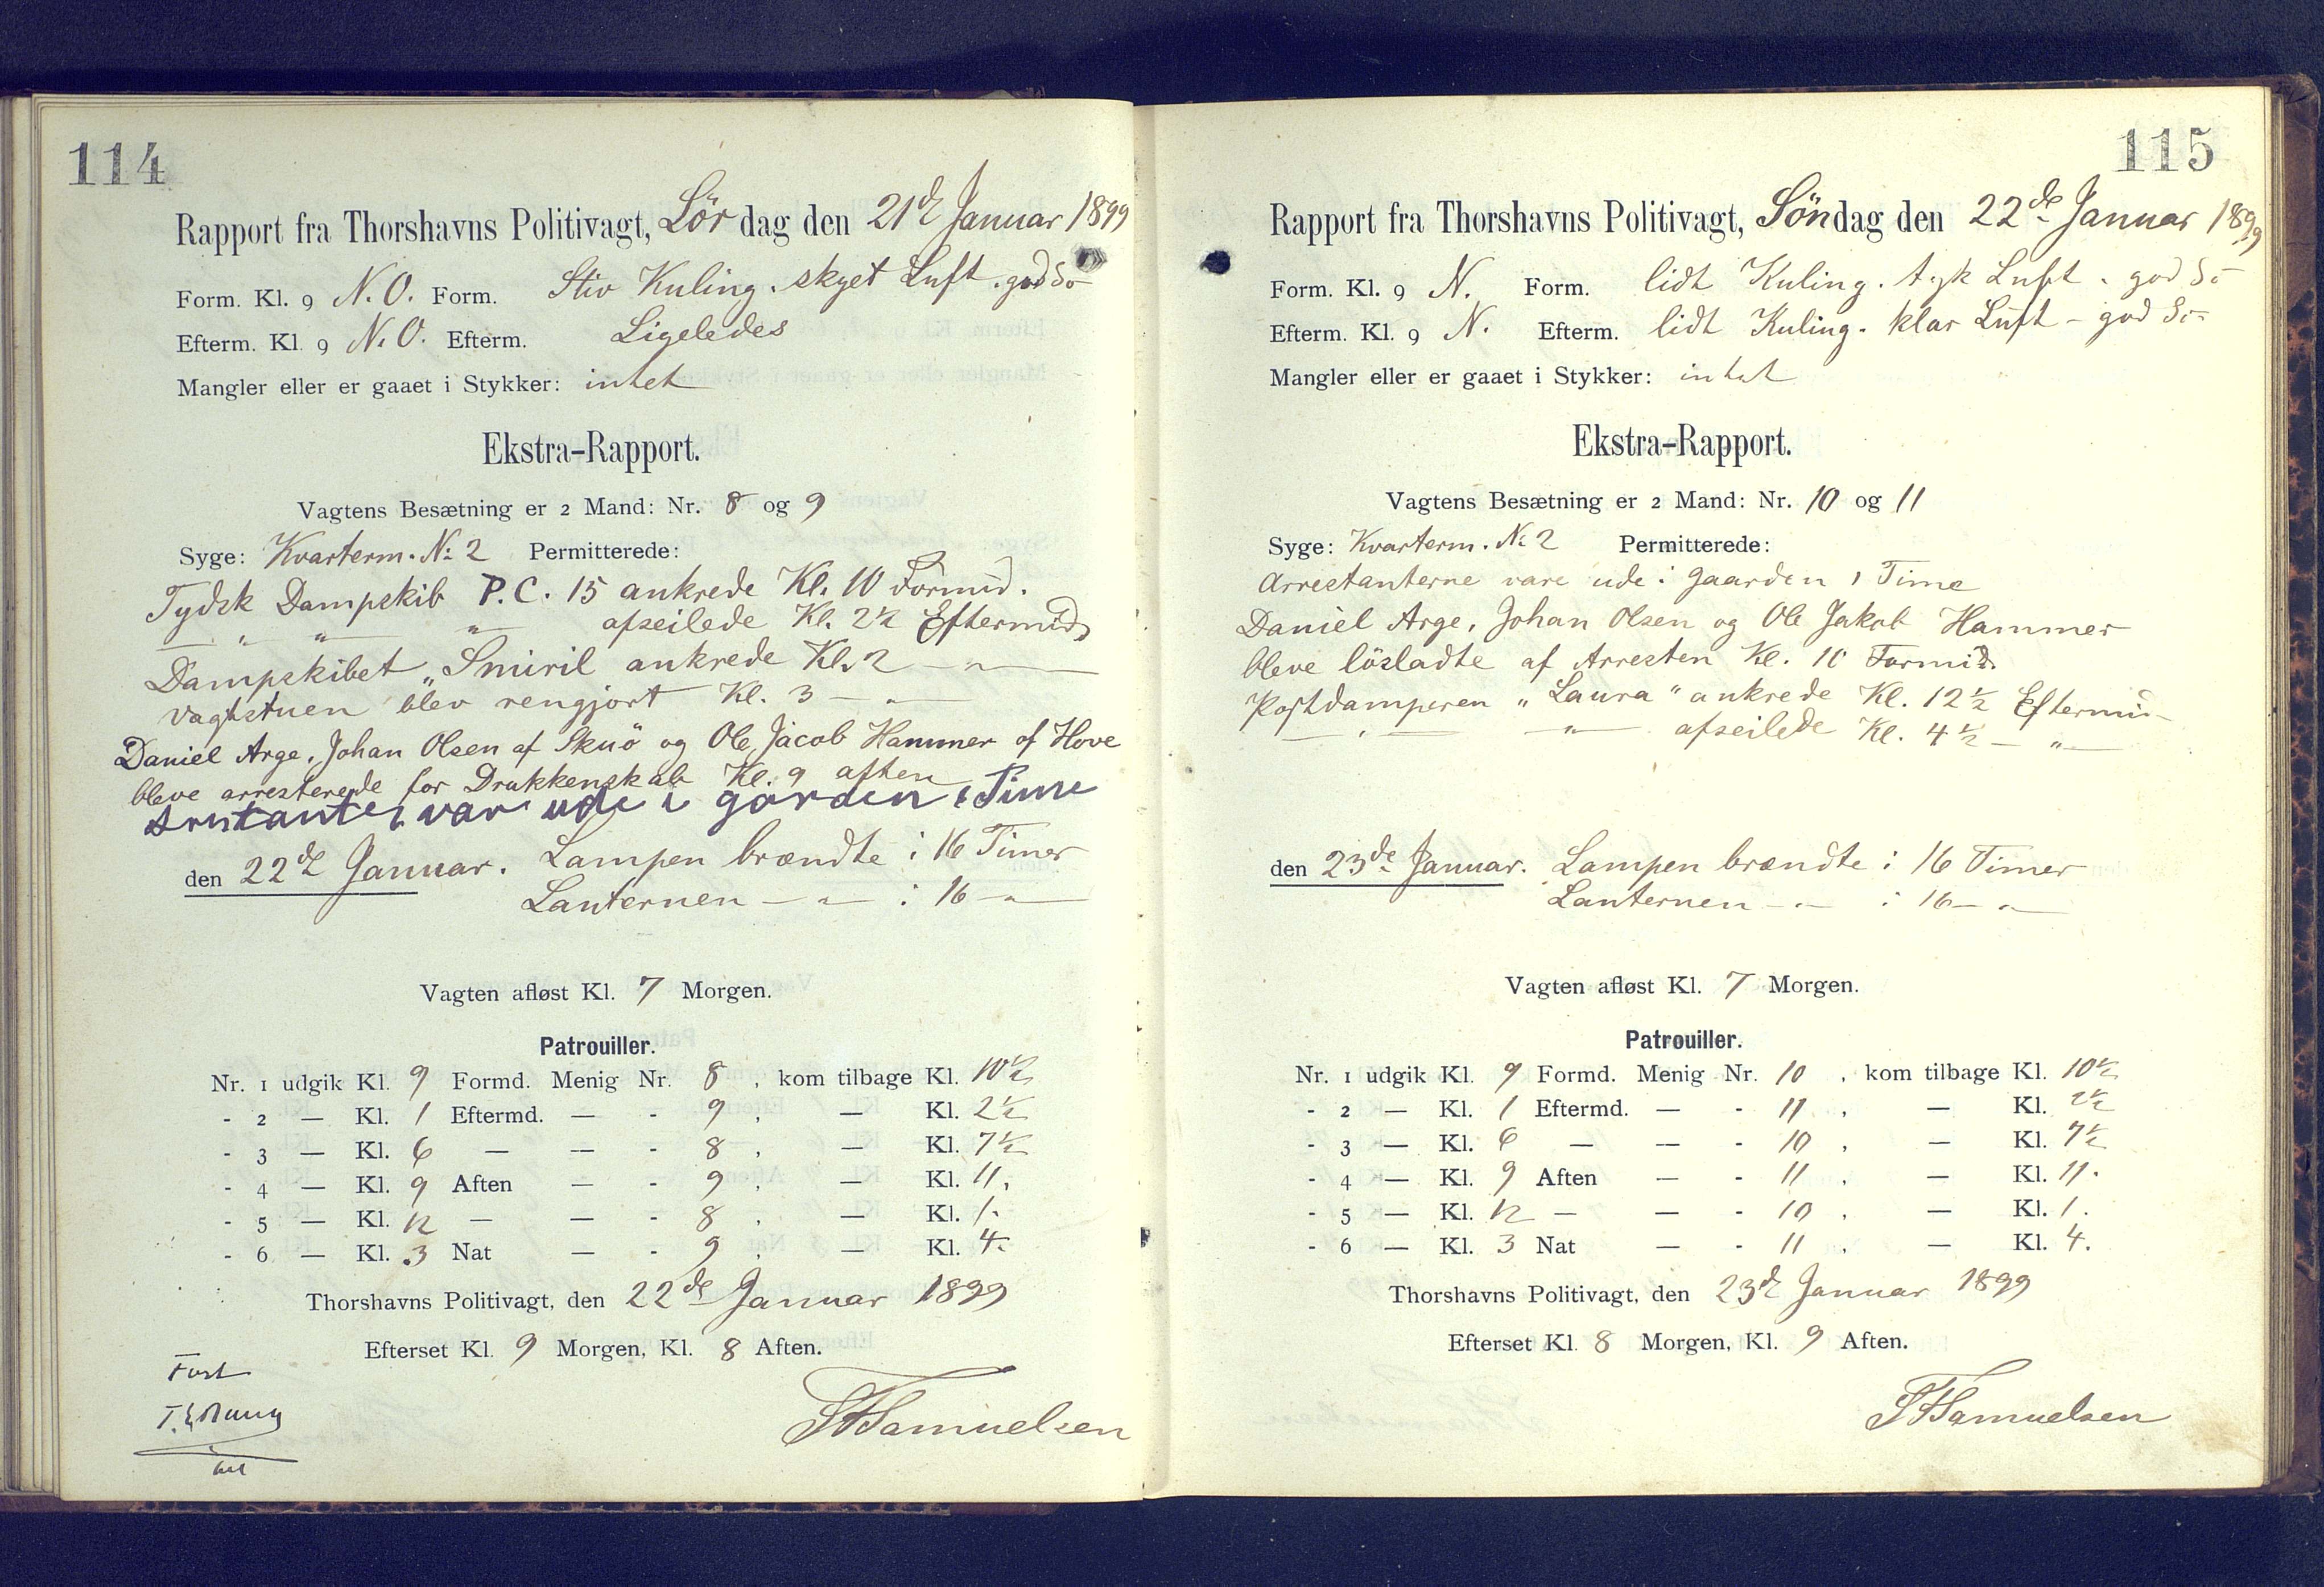 114
Rapport fra Thorshavns Politivagt, Lördag den 21de Januar 1899
Form. Kl. 9 N.O. Form. Stiv Kuling. skyet Luft. god Sö
Efterm. Kl. 9 N.O. Efterm. Ligeledes
Mangler eller er gaaet i Stykker: intet
Ekstra-Rapport.
Vagtens Besætning er 2 Mand: Nr. 8 og 9
Syge: Kvarterm. No 2 Permitterede:
Tydsk Dampskib P.C. 15 ankrede Kl. 10 Formid.
— " — " — " — afseilede Kl. 2½ Eftermid.
Dampskibet „Smiril ankrede Kl. 2 — " —
Vagtstuen blev rengjort Kl. 3 — " —
Daniel Arge, Johan Olsen af Skuö og Ole Jacob Hammer af Hove
bleve arresterede for Drukkenskab Kl. 9 aften
Arrestanter var ude i gården 1 Time
den 22de Januar. Lampen brændte i 16 Timer
Lanternen — " — i 16 — " —
Vagten afløst Kl. 7 Morgen.
Patrouiller.
Nr. 1 udgik Kl. 9 Formd. Menig Nr. 8, kom tilbage Kl. 10½
- 2 — Kl. 1 Eftermd. — - 9, — Kl. 2½
- 3 — Kl. 6 — — - 8, — Kl. 7½
- 4 — Kl. 9 Aften — - 9, — Kl. 11.
- 5 — Kl. 12 — — - 8, — Kl. 1.
- 6 — Kl. 3 Nat — - 9, — Kl. 4.
Thorshavns Politivagt, den 22de Januar 1899
Efterset Kl. 9 Morgen, Kl. 8 Aften.
Samuelsen
115
Rapport fra Thorshavns Politivagt, Söndag den 22de Januar 1899
Form. Kl. 9 N. Form. lidt Kuling. tyk Luft. god Sö
Efterm. Kl. 9 N. Efterm. lidt Kuling. klar Luft - god Sö
Mangler eller er gaaet i Stykker: intet
Ekstra-Rapport.
Vagtens Besætning er 2 Mand: Nr. 10 og 11
Syge: Kvarterm. No 2 Permitterede:
Arrestanterne vare ude i Gaarden 1 Time
Daniel Arge, Johan Olsen og Ole Jakob Hammer
bleve lösladte af Arresten Kl. 10 Formid.
Postdamperen „Laura" ankrede Kl. 12½ Eftermid
— " — " — afseilede Kl. 4½ — " —
den 23de Januar. Lampen brændte i 16 Timer
Lanternen — " — i 16 — " —
Vagten afløst Kl. 7 Morgen.
Patrouiller.
Nr. 1 udgik Kl. 9 Formd. Menig Nr. 10, kom tilbage Kl. 10½
- 2 — Kl. 1 Eftermd. — - 11, — Kl. 2½
- 3 — Kl. 6 — — - 10, — Kl. 7½
- 4 — Kl. 9 Aften — - 11, — Kl. 11.
- 5 — Kl. 12 — — - 10, — Kl. 1.
- 6 — Kl. 3 Nat — - 11, — Kl. 4.
Thorshavns Politivagt, den 23de Januar 1899
Efterset Kl. 8 Morgen, Kl. 9 Aften.
Samuelsen